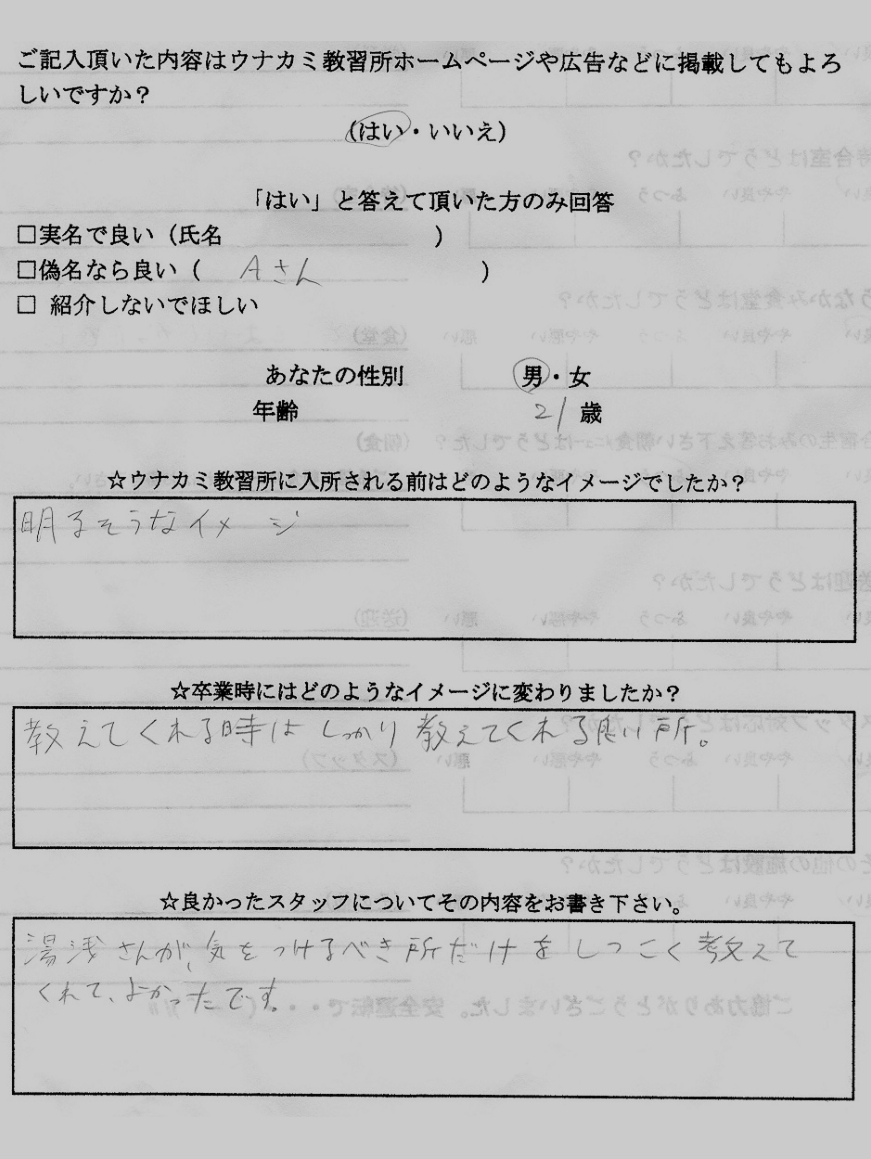 ご記入頂いた内容はウナカミ教習所ホームページや広告などに掲載してもよろ
しいですか？
(はい・いいえ)
「はい」と答えて頂いた方のみ回答
□実名で良い（氏名　　　　　　　　）
□偽名なら良い（　Aさん　　　　　　　）
□ 紹介しないでほしい
あなたの性別　　　　男・女
年齢　　　　　　　　21歳
☆ウナカミ教習所に入所される前はどのようなイメージでしたか？
明るそうなイメージ
☆卒業時にはどのようなイメージに変わりましたか？
教えてくれる時はしっかり教えてくれる良い所。
☆良かったスタッフについてその内容をお書き下さい。
湯浅さんが、気をつけるべき所だけをしつこく教えて
くれて、よかったです。